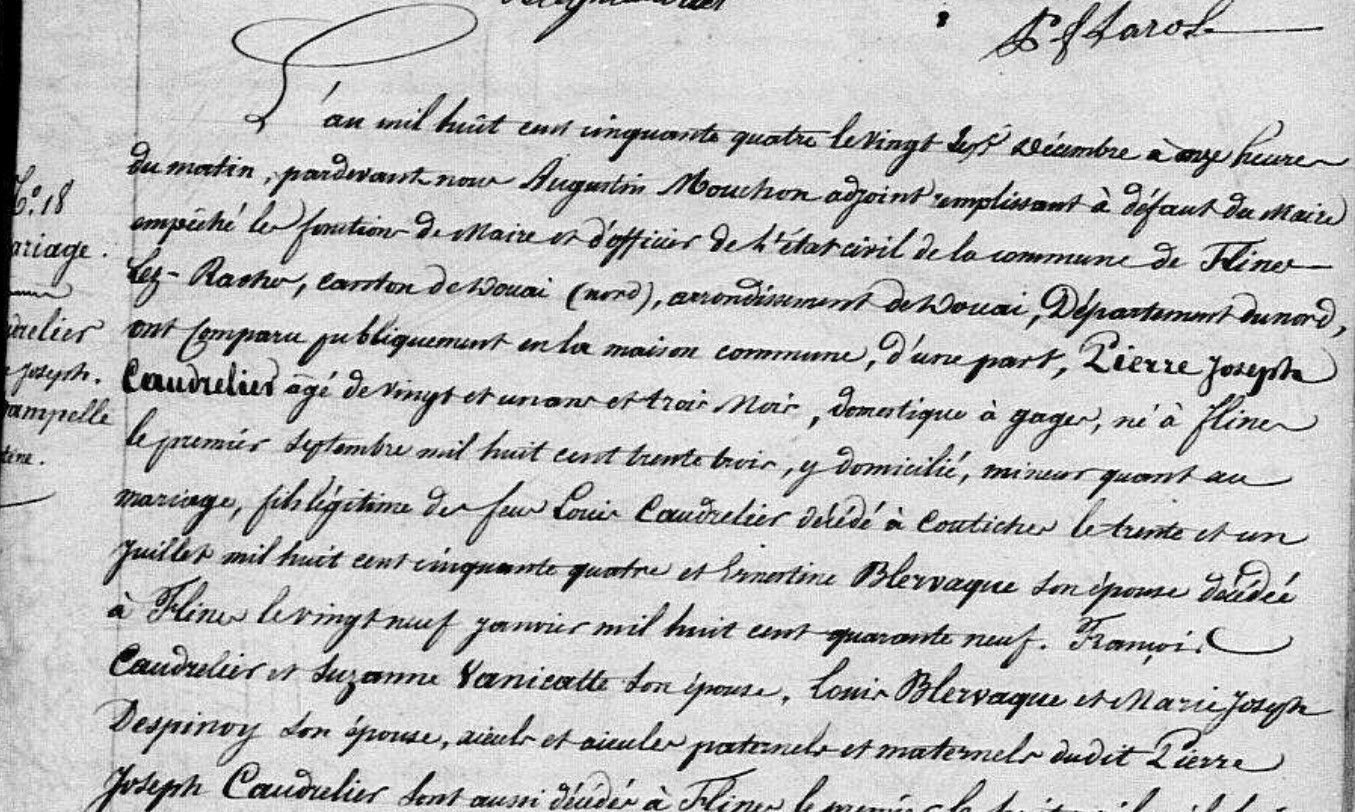 P f Larol
L'an mil huit cent cinquante quatre le vingt Sept Décembre à onze heures
du matin, pardevant nous Augustin Mouchon adjoint remplissant à défaut du Maire
empêché les fonctions de Maire et d'officier de l'état civil de la commune de Flines
Lez-Raches, canton de Douai (nord), arrondissement de Douai, Département du nord,
ont Comparu publiquement en la maison commune, d'une part, Pierre Joseph
Caudrelier agé de vingt et un ans et trois Mois, domestique à gages, né à flines
le premier Septembre mil huit cent trente trois, y domicilié, mineur quant au
mariage, fils légitime de feu Louis Caudrelier décédé à Coutiches le trente et un
Juillet mil huit cent cinquante quatre et Ernestine Blervaque son épouse décédée
à Flines le vingt neuf janvier mil huit cent quarante neuf. François
Caudrelier et Suzanne Vanicatte son épouse, Louis Blervaque et Marie Joseph
Despinoy son épouse, aieuls et aieules paternels et maternels dudit Pierre
Joseph Caudrelier sont aussi décédés à Flines le premier le
N.° 18
ariage.
udrelier
e Joseph.
ampelle
tine.